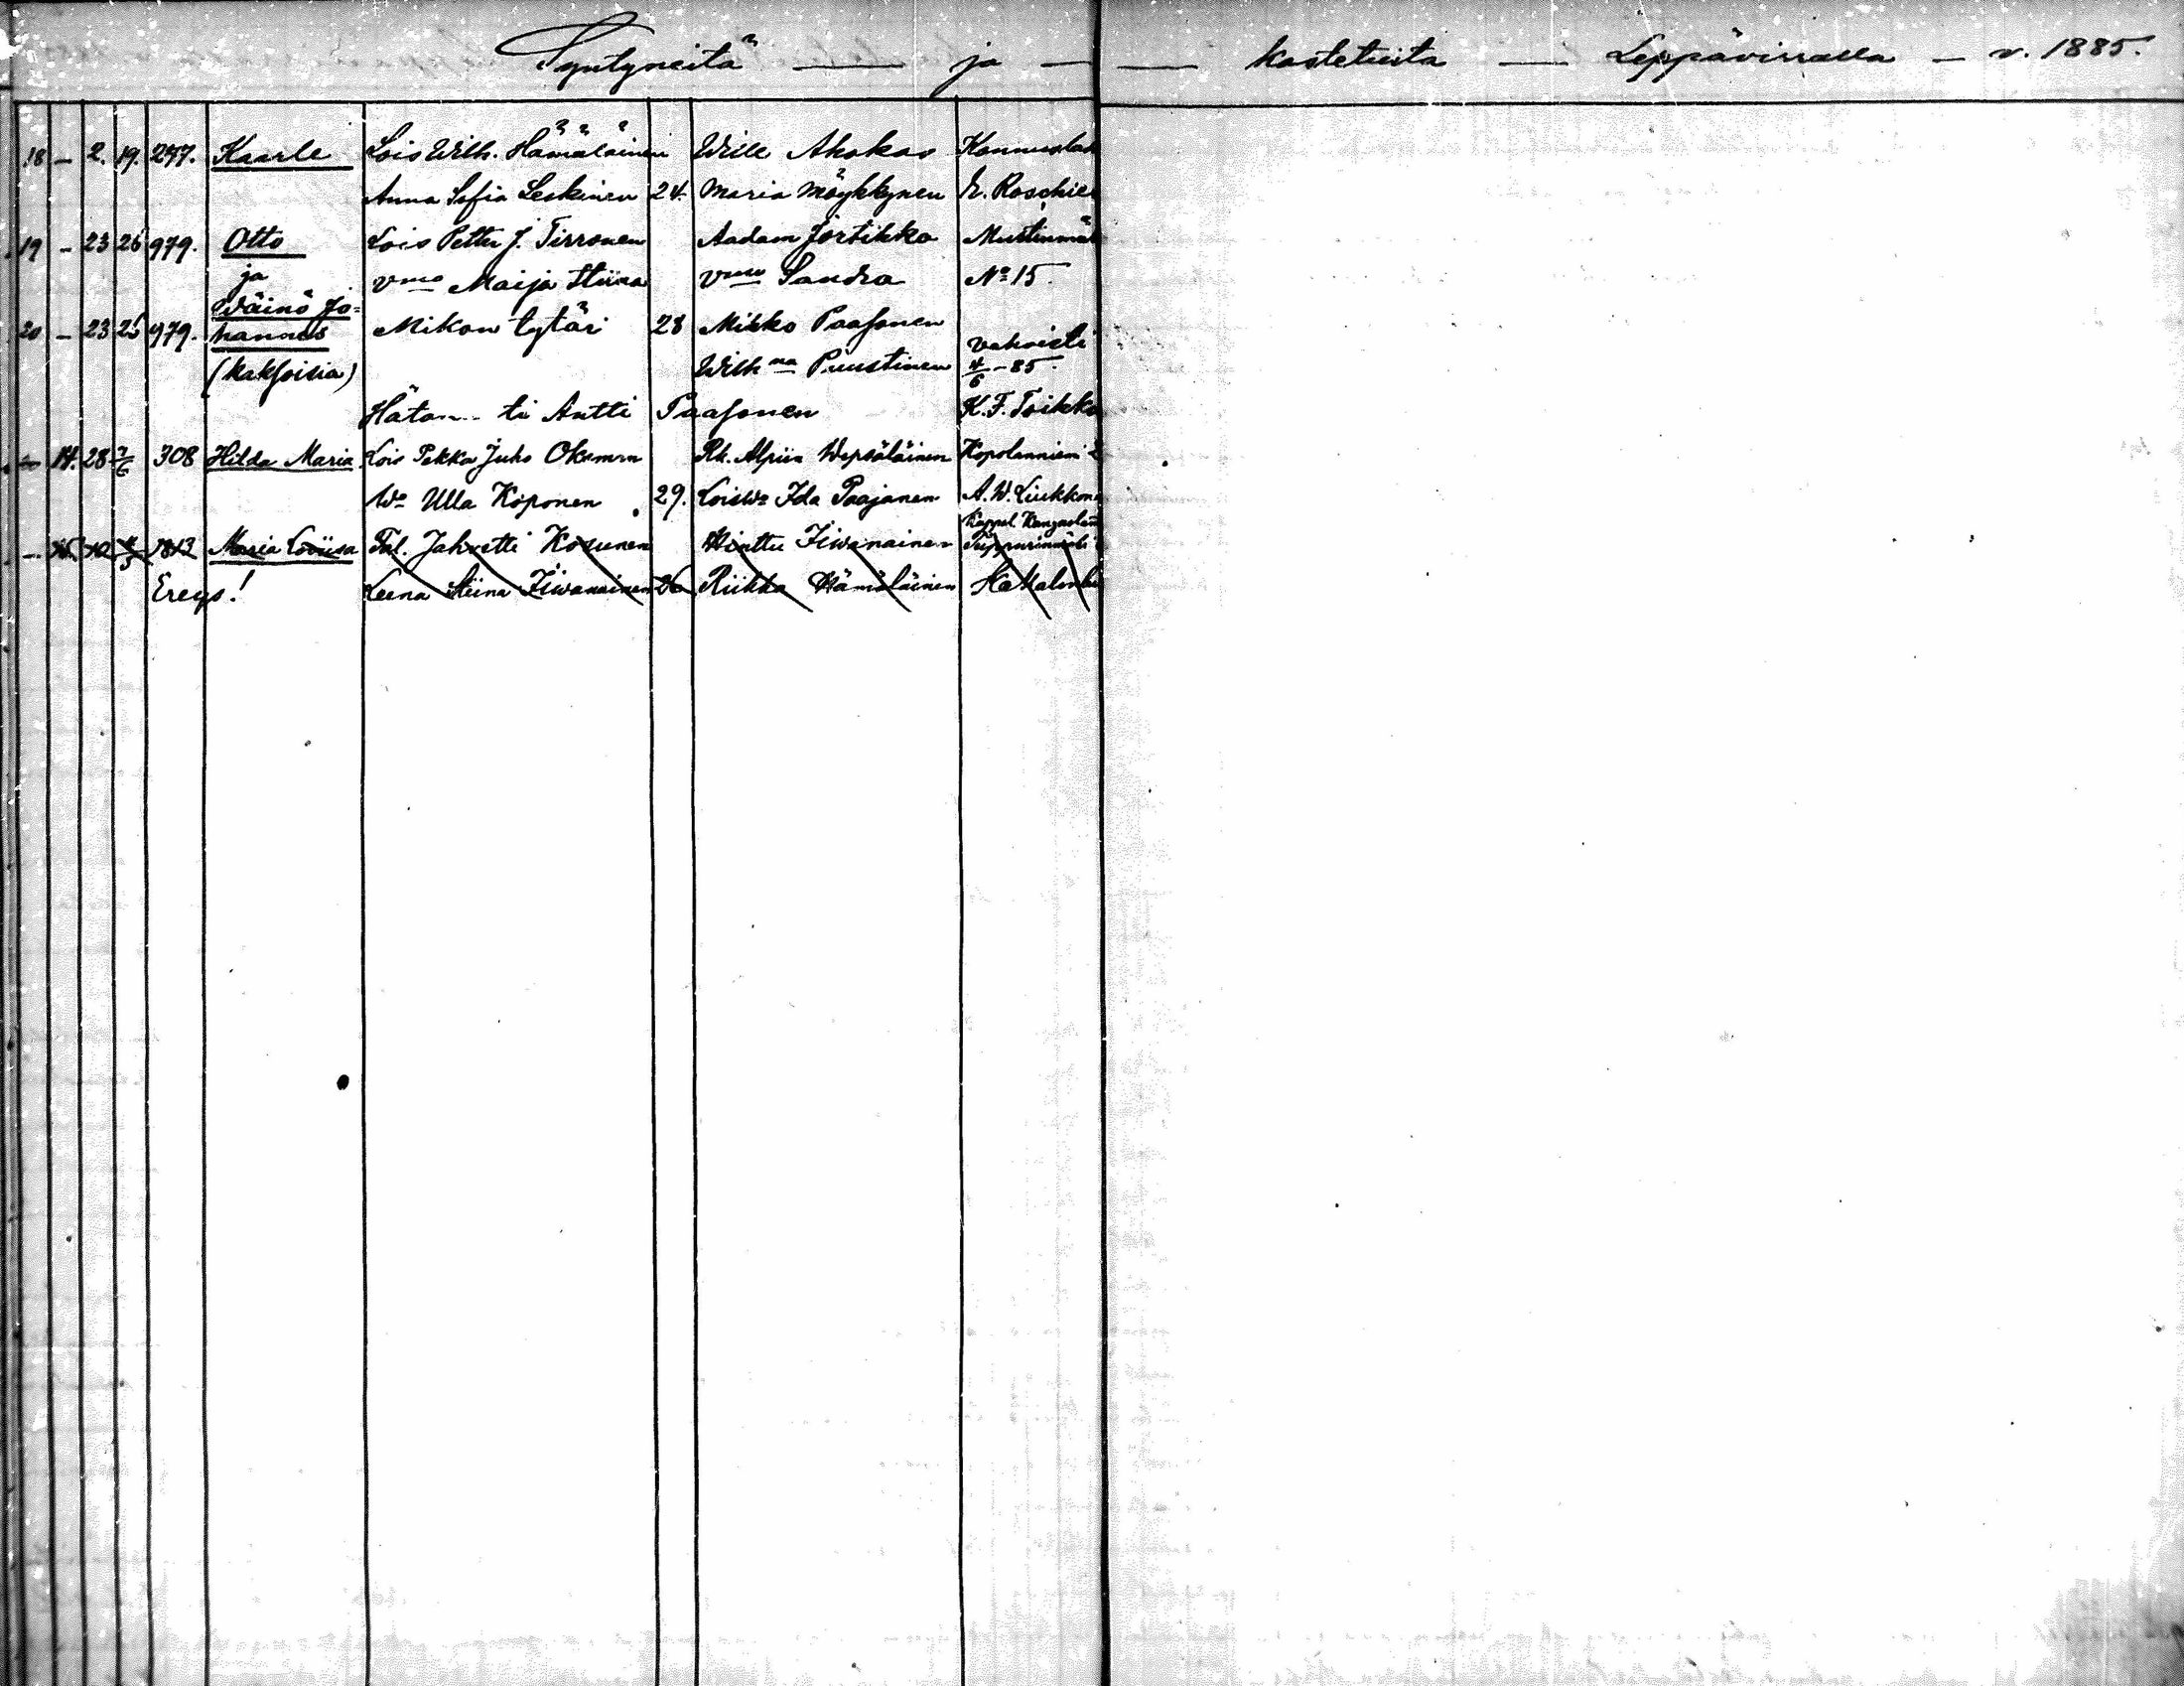 Syntyneitä — ja — — kastetuita — Leppävirralla — v. 1885.
18 – 2. 19. 277. Kaarle Lois Wilh. Hämäläinen Wille Akokas
Anna Sofia Leskinen 24. Maria Möykkynen E. Roschier
19 – 23 26 979. Otto Lois Petter J. Tirronen Aadam Jortikka
ja vmo Maija Stiina vmo Sandra No 15.
Wäinö Jo=
20 – 23 26 979. hannes Mikon tytär 28 Mikko Paasonen
vahvisti
(kaksoisia) Wilhna Puustinen 4/6 – 85.
Antti Paasonen K. F. Toikka
– 14. 28 308 Hilda Maria Lois Pekka Juho Oksman Rh. Alpiin Wepsäläinen Kopolanniemi 2
Wo Ulla Koponen 29. Lois Wo Ida Paajanen A. W. Liukkonen
Kappel. Kangaslam
– 1813 Maria Loviisa Tal. Jahvetti Kosunen Hinttu Iiwanainen
Ereys! Leena Stiina Iiwanainen 26 Riikka Hämäläinen